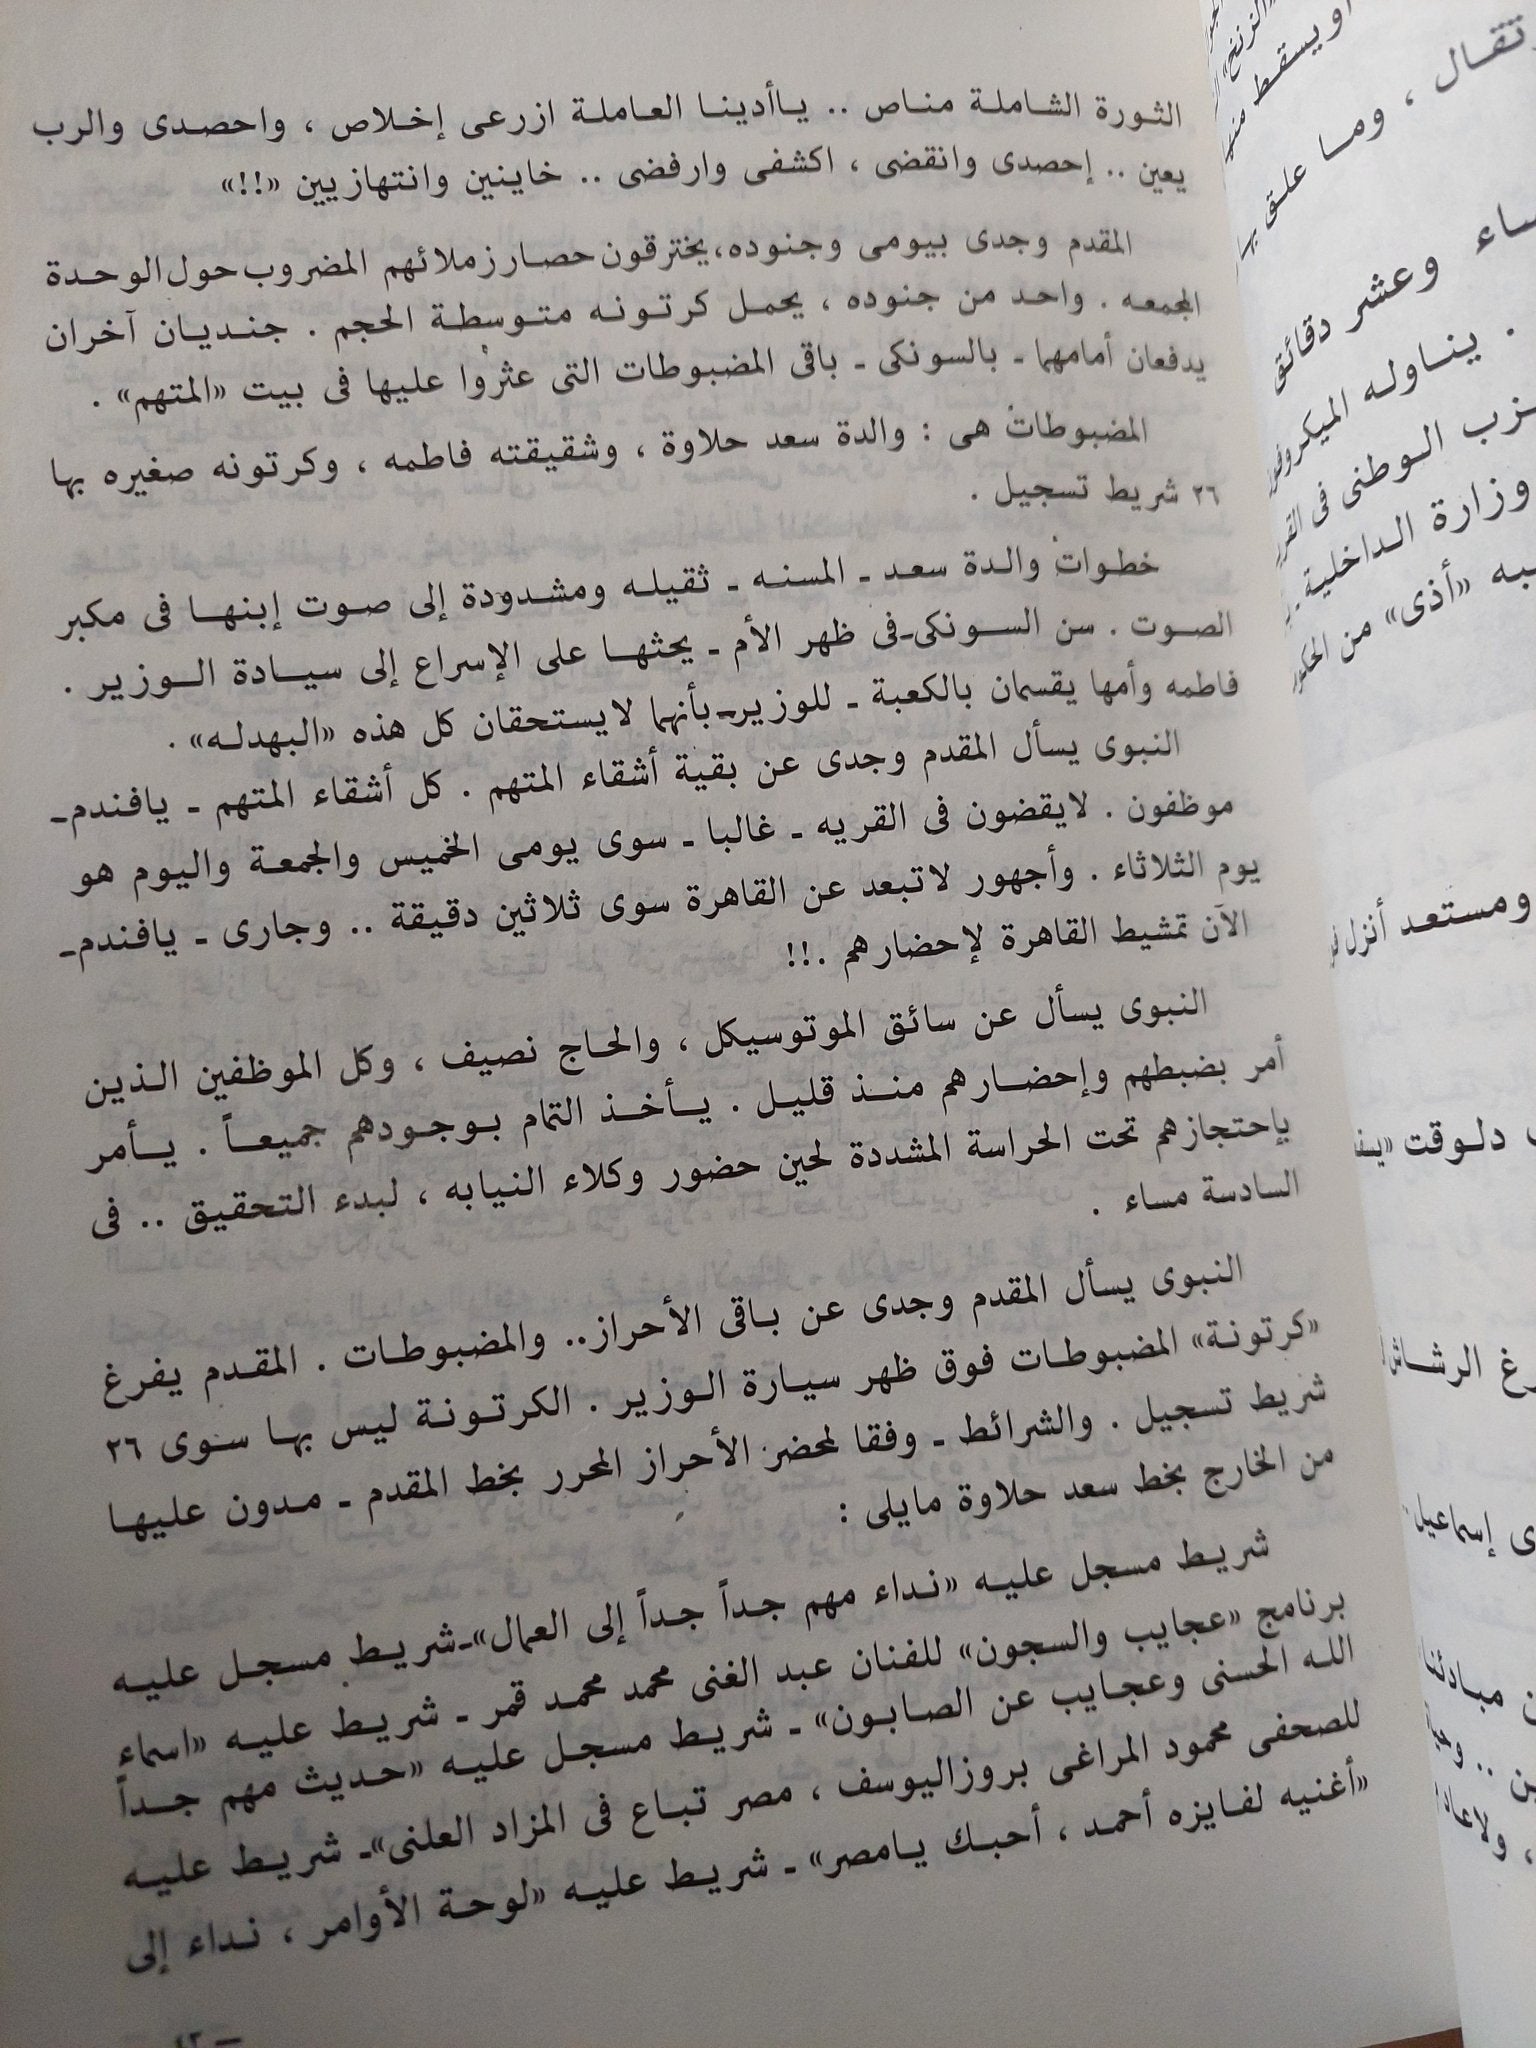 الثورة الشاملة مناص .. ياأدينا العاملة ازرعى إخلاص ، واحصدى والرب
يعين .. إحصدى وانقضى ، اكشفى وارفضى .. خاينين وانتهازيين «!!»
المقدم وجدى بيومى وجنوده، يخترقون حصار زملائهم المضروب حول الوحدة
المجمعه . واحد من جنوده ، يحمل كرتونه متوسطة الحجم . جنديان آخران
يدفعان أمامهما ـ بالسونكى ـ باقى المضبوطات التى عثروا عليها فى بيت «المتهم» .
المضبوطات هى : والدة سعد حلاوة ، وشقيقته فاطمه ، وكرتونه صغيره بها
٢٦ شريط تسجيل .
خطوات والدة سعد ـ المسنه ـ ثقيله ومشدودة إلى صوت إبنها فى مكبر
الصوت . سن السونكى ـ فى ظهر الأم ـ يحثها على الإسراع إلى سيادة الوزير .
فاطمه وأمها يقسمان بالكعبة ـ للوزير ـ بأنهما لايستحقان كل هذه «البهدله» .
النبوى يسأل المقدم وجدى عن بقية أشقاء المتهم . كل أشقاء المتهم ـ يافندم ـ
موظفون . لايقضون فى القريه ـ غالبا ـ سوى يومى الخميس والجمعة واليوم هو
يوم الثلاثاء . وأجهور لاتبعد عن القاهرة سوى ثلاثين دقيقة .. وجارى ـ يافندم ـ
الآن تمشيط القاهرة لإحضارهم .!!
النبوى يسأل عن سائق الموتوسيكل ، والحاج نصيف ، وكل الموظفين الذين
أمر بضبطهم وإحضارهم منذ قليل . يأخذ التمام بوجودهم جميعاً . يأمر
بإحتجازهم تحت الحراسة المشددة لحين حضور وكلاء النيابه ، لبدء التحقيق .. فى
السادسة مساء .
النبوى يسأل المقدم وجدى عن باقى الأحراز.. والمضبوطات . المقدم يفرغ
«كرتونة» المضبوطات فوق ظهر سيارة الوزير . الكرتونة ليس بها سوى ٢٦
شريط تسجيل . والشرائط ـ وفقا لمحضر الأحراز المحرر بخط المقدم ـ مدون عليها
من الخارج بخط سعد حلاوة مايلى :
شريط مسجل عليه «نداء مهم جداً جداً إلى العمال» ـ شريط مسجل عليه
برنامج «عجايب والسجون» للفنان عبد الغنى محمد محمد قمر ـ شريط عليه «اسماء
الله الحسنى وعجايب عن الصابون» ـ شريط مسجل عليه «حديث مهم جداً
للصحفى محمود المراغى بروزاليوسف ، مصر تباع فى المزاد العلنى» ـ شريط عليه
«أغنيه لفايزه أحمد ، أحبك يامصر» ـ شريط عليه «لوحة الأوامر ، نداء إلى
«الزنخ»
اويسقط
تقال ، وما علق بها
وعشر دقائق
. يناوله الميكروفو
الوطنى فى القر
وزارة الداخلية
«أذى» من الحكو
ومستعد أنزل
دلوقت
الرشاش
إسماعيل